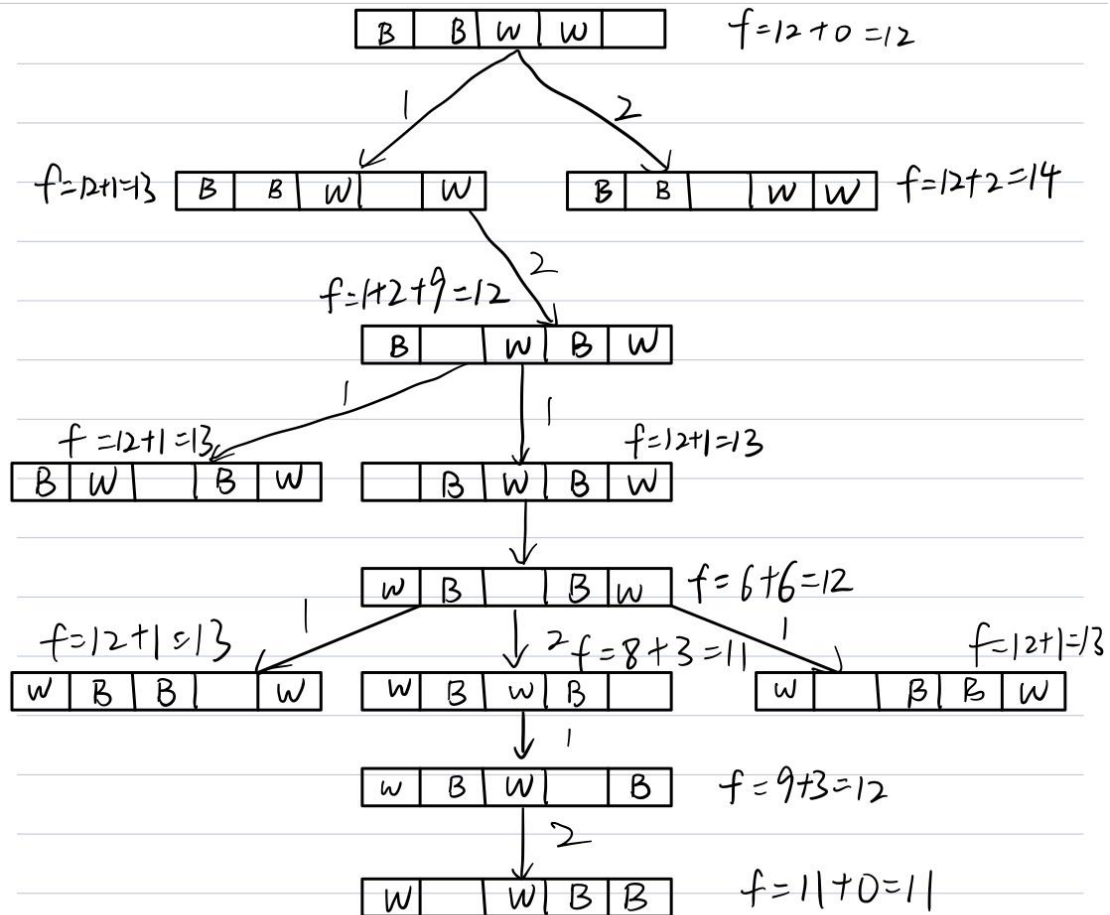 B B W W f=12+0=12
1 2
f=12+1=13 B B W W B B W W f=12+2=14
2
f=1+2+9=12
B W B W
1 1
f=12+1=13 f=12+1=13
B W B W B W B W
W B B W f=6+6=12
1 1
f=12+1=13 2 f=8+3=11 f=12+1=13
W B B W W B W B W B B W
1
W B W B f=9+3=12
2
W W B B f=11+0=11